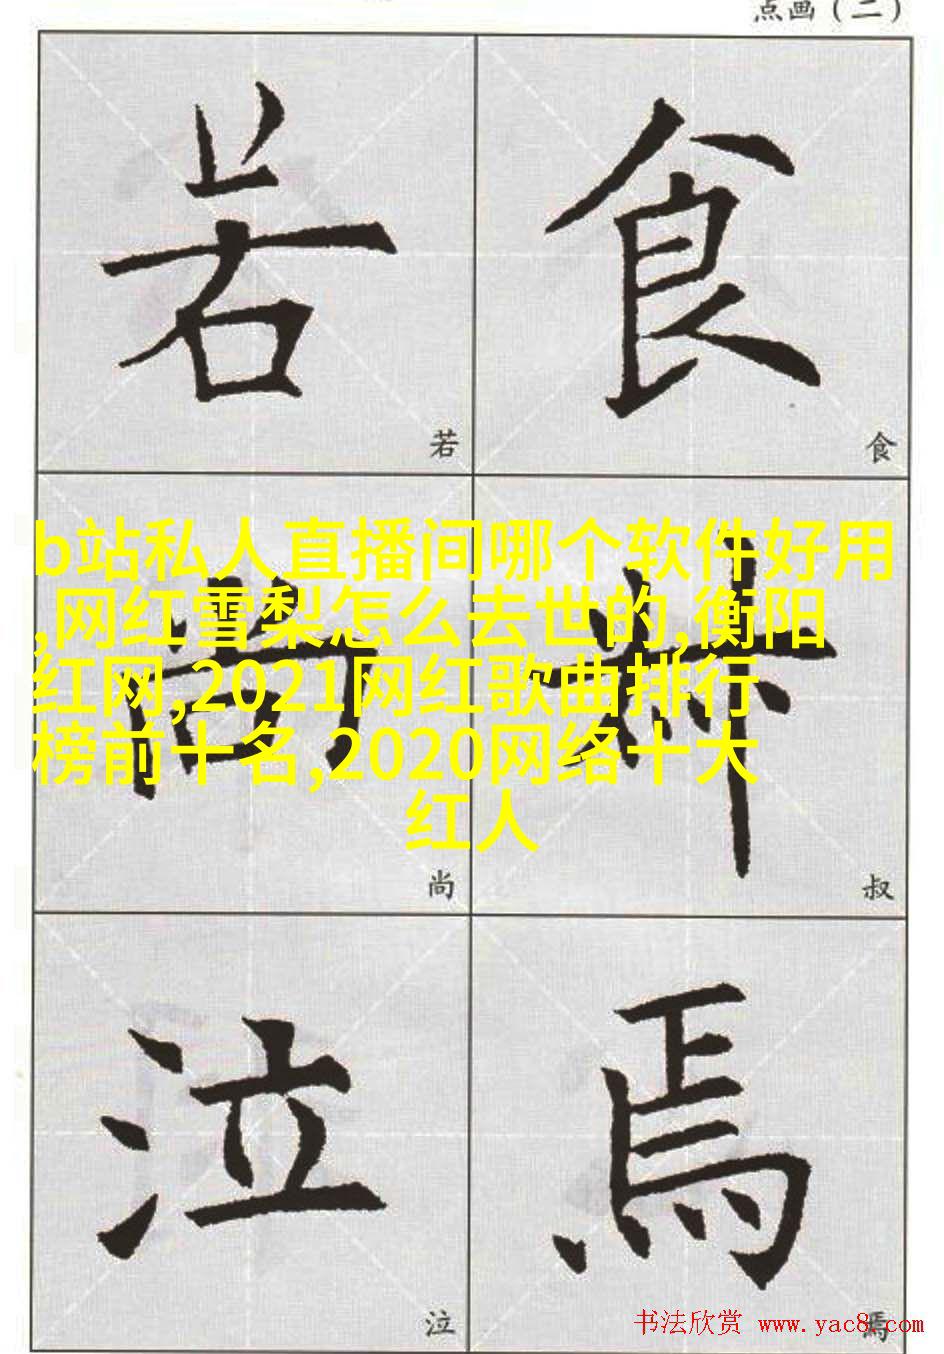 点画（二）
若 食
若 食
b站私人直播间哪个软件好用
,网红雪梨怎么去世的,衡阳
红网,2021网红歌曲排行
榜前十名,2020网络十大
红人
尚 叔
尚 叔
泣 焉
泣 焉
书法欣赏 www.yac8.com